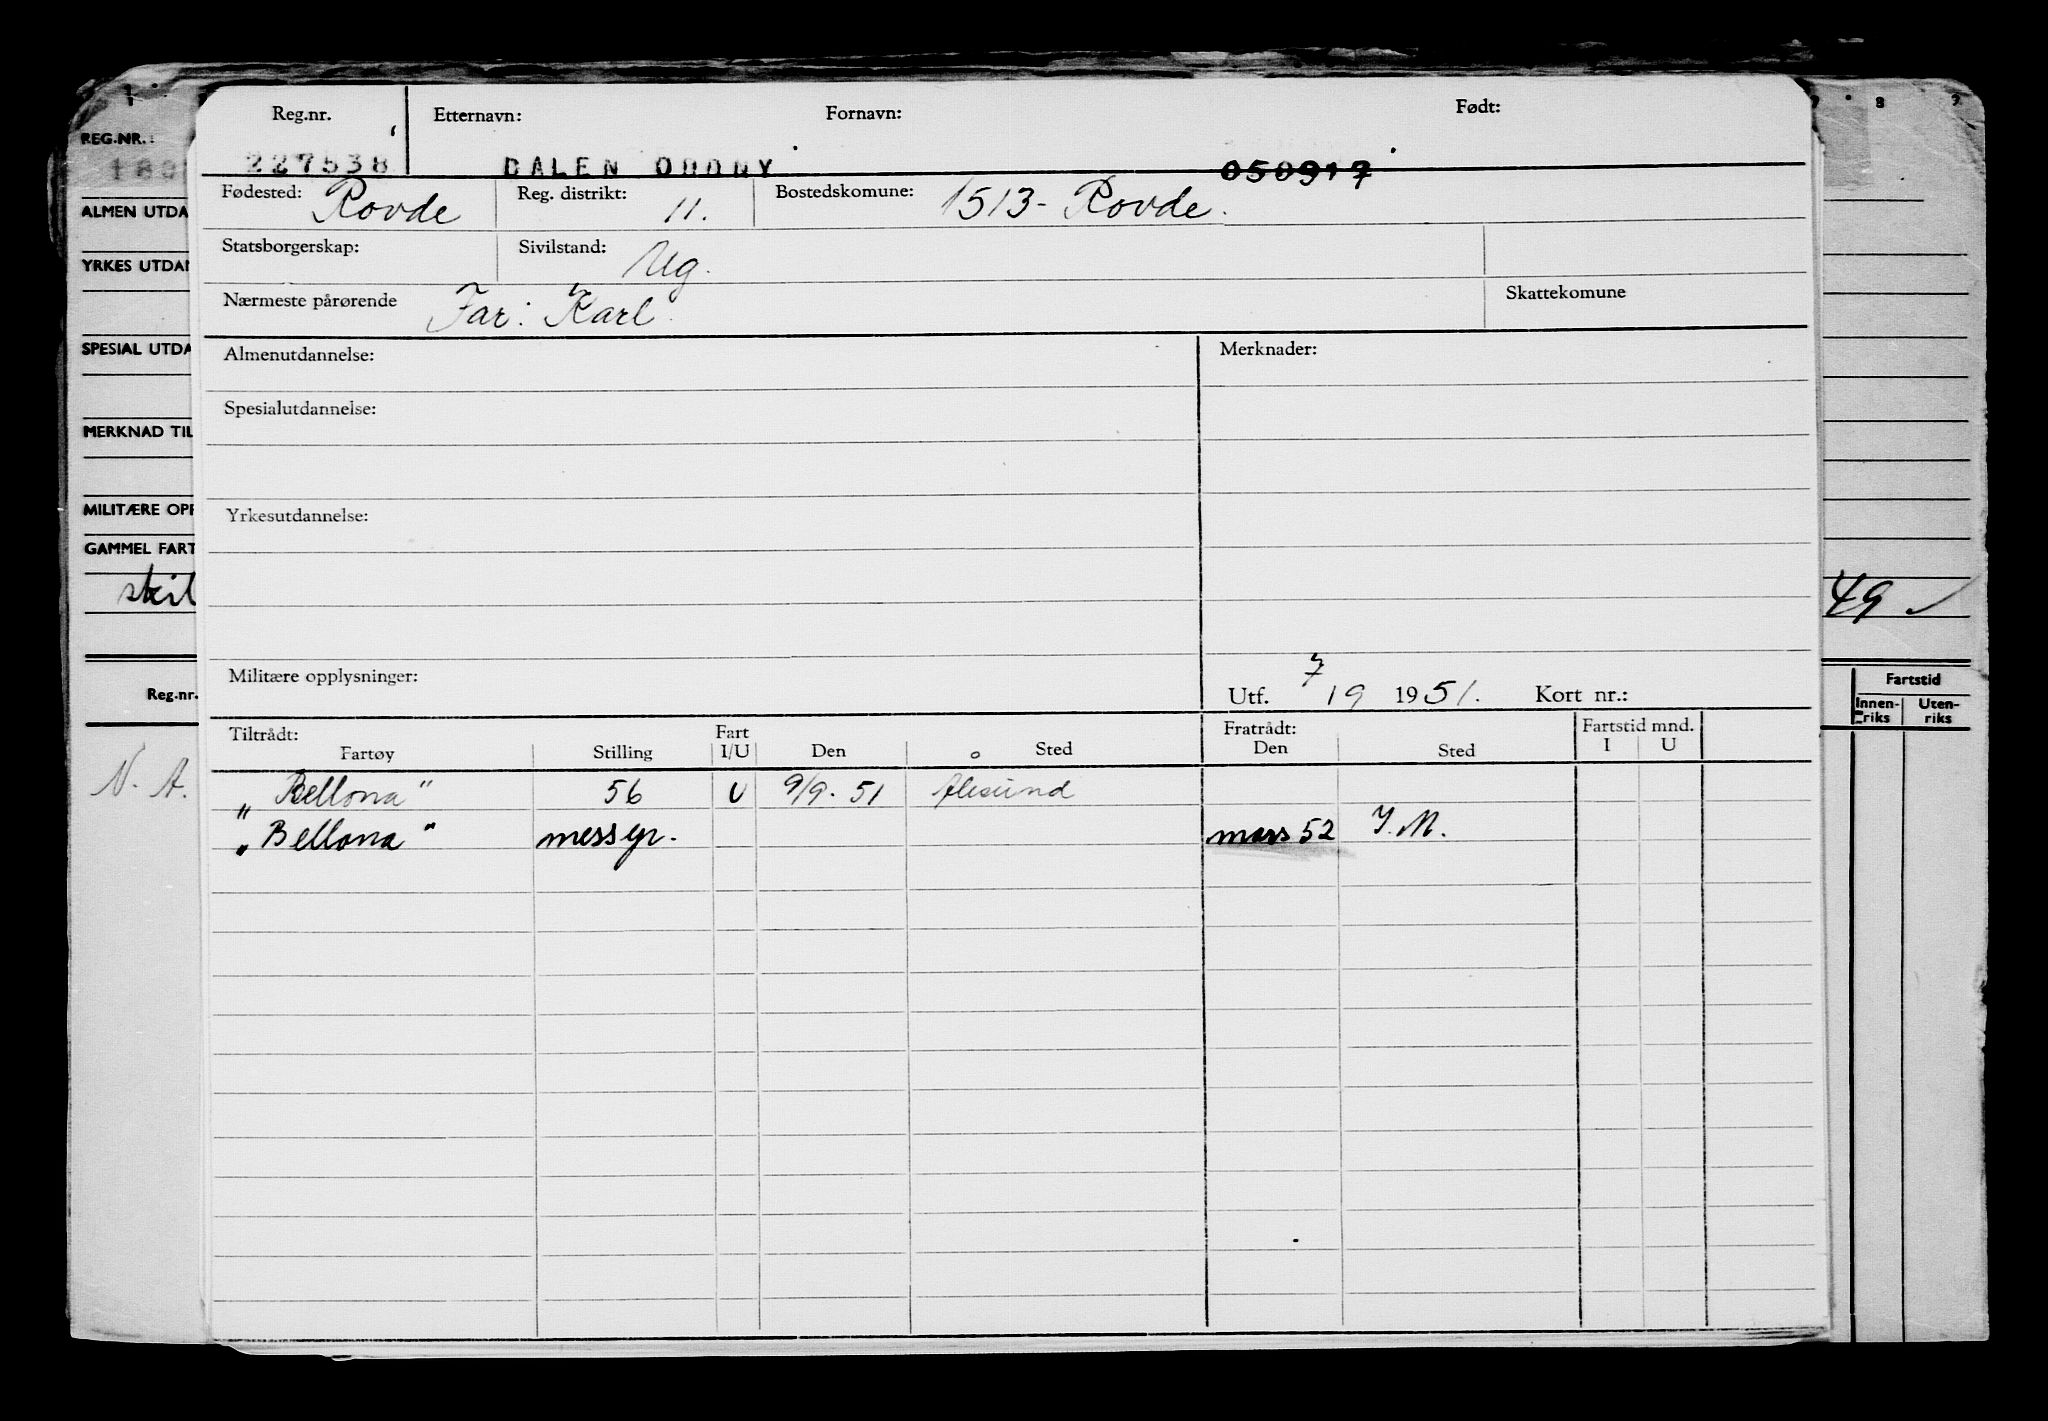 Reg.nr. Etternavn: Fornavn: Født:
227538 DALEN ODDNY 050917
Fødested: Rovde Reg. distrikt: 11. Bostedskomune: 1513- Rovde.
Statsborgerskap: Sivilstand: Ug.
Nærmeste pårørende Far: Karl. Skattekomune
Almenutdannelse: Merknader:
Spesialutdannelse:
Yrkesutdannelse:
Militære opplysninger: Utf. 7/9 1951. Kort nr.:
Tiltrådt: Fart Fratrådt: Fartstid mnd.
Fartøy Stilling I/U Den Sted Den Sted I U
"Bellona" 56 U 9/9. 51 Ålesund
"Bellona" messgp. mars 52 I.M.
REG.NR.:
ALMEN UTDA
YRKES UTDAN
SPESIAL UTDA
MERKNAD TIL
MILITÆRE OPP
GAMMEL FART
skil 49 ✓
Reg.nr. Fartstid
Innen-riks Uten-riks
N. A.
8 9